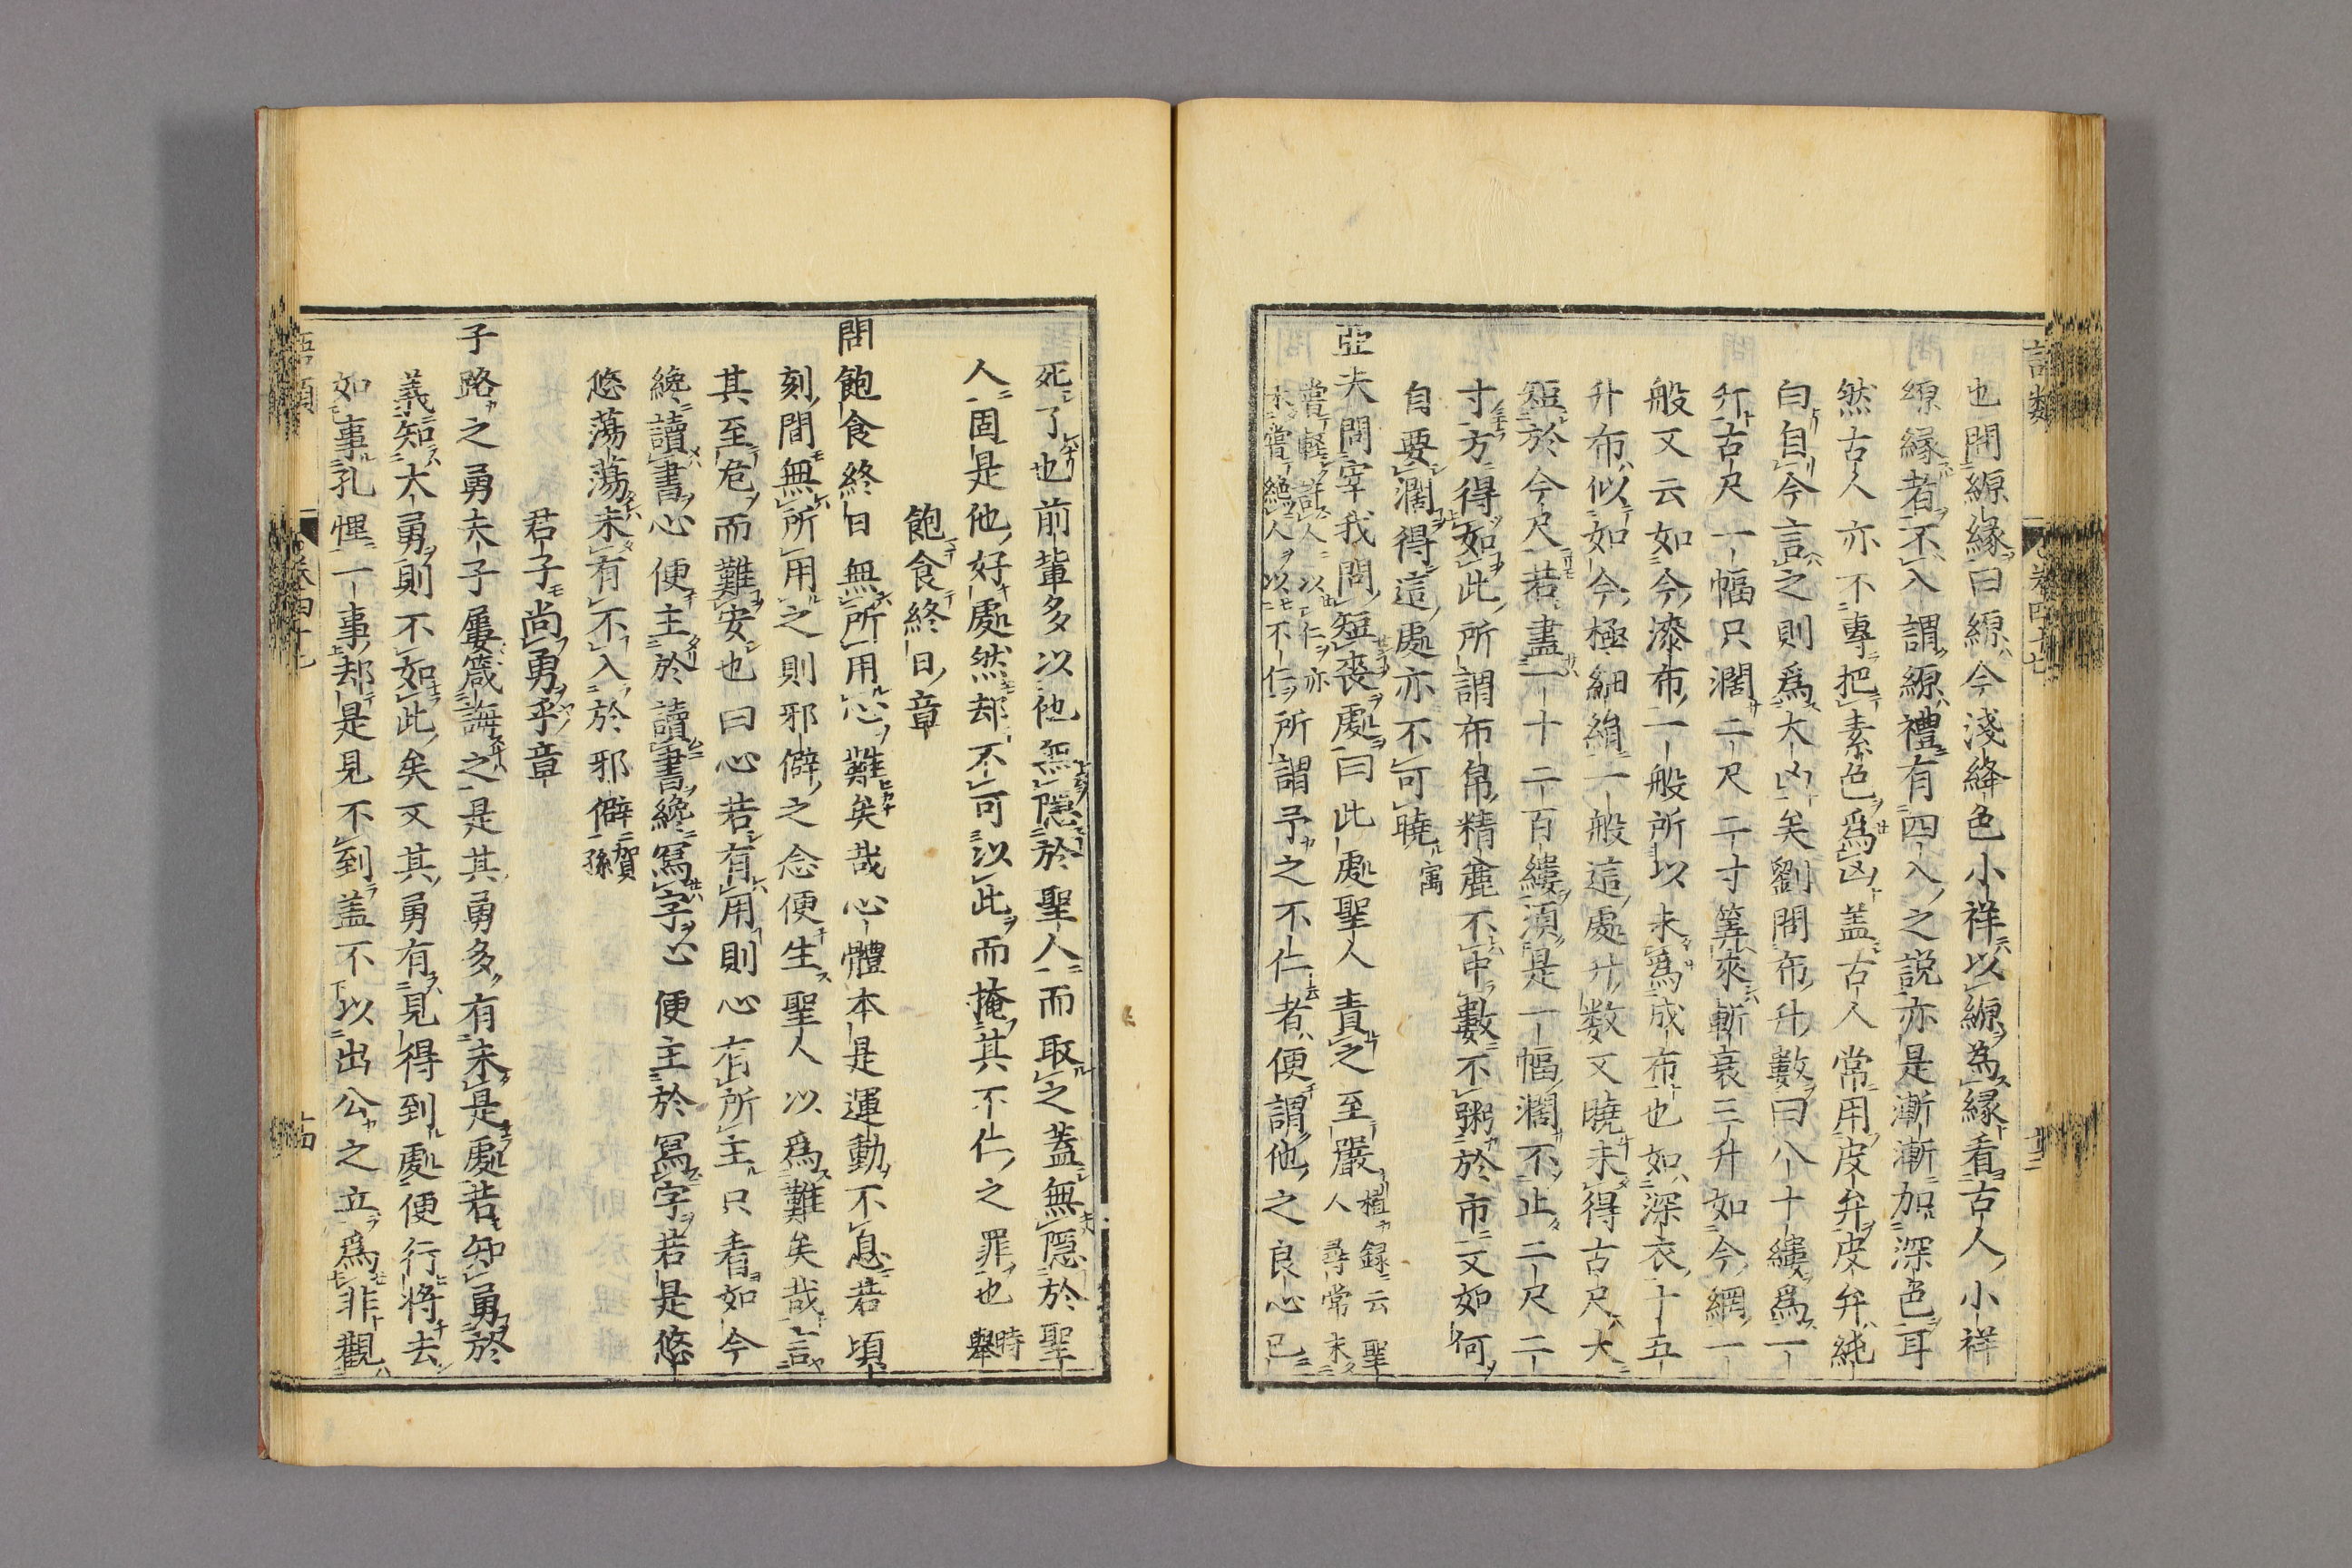 語類 卷四十七 十三
也問縓緣曰縓今淺絳色小祥以縓為緣看古人小祥
縓緣者不入謂縓禮有四入之說亦是漸漸加深色耳
然古人亦不專把素色爲凶盖古人常用皮弁皮弁純
白自今言之則爲大凶矣劉問布升數曰八十縷爲一
升古尺一幅只濶二尺二寸筭來斬衰三升如今網一
般又云如今漆布一般所以未爲成布也如深衣十五
升布似如今極細絹一般這處升数又曉未得古尺大
短於今尺若盡一十二百縷須是一幅濶不止二尺二
寸方得如此所謂布帛精麄不中數不粥於市又如何
自要濶得這處亦不可曉 寓
亞夫問宰我問短喪處曰此處聖人責之至嚴 植録云聖人尋常未
嘗輕許人以仁亦未嘗絶人以不仁 所謂予之不仁者便謂他之良心已
死了也前輩多以他無隱於聖人而取之蓋無隱於聖
人固是他好處然却不可以此而掩其不仁之罪也 時舉
飽食終日章
問飽食終日無所用心難矣哉心體本是運動不息若頃
刻間無所用之則邪僻之念便生聖人以爲難矣哉言
其至危而難安也曰心若有用則心有所主只看如今
纔讀書心便主於讀書纔寫字心便主於寫字若是悠
悠蕩蕩未有不入於邪僻 賀孫
君子尚勇乎章
子路之勇夫子屢箴誨之是其勇多有未是處若知勇於
義知大勇則不如此矣又其勇有見得到處便行將去
如事孔悝一事却是見不到盖不以出公之立爲非觀
語類 卷四十七 十四